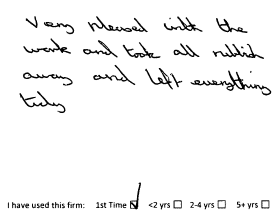 Very pleased with the
work and took all rubbish
away and left everything
tidy
I have used this firm: 1st Time ☑ <2 yrs ☐ 2-4 yrs ☐ 5+ yrs ☐